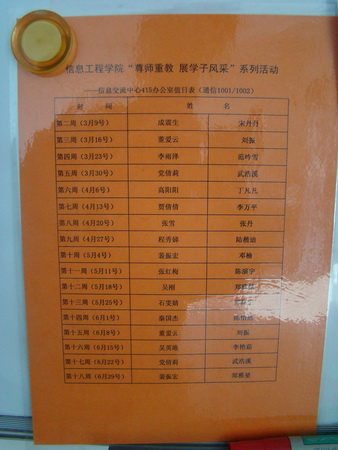 信息工程学院“尊师重教 展学子风采”系列活动
——信息交流中心415办公室值日表（通信1001/1002）
时 间 姓 名
第二周（3月9号） 成震生 宋丹丹
第三周（3月16号） 董爱云 刘振
第四周（3月23号） 李雨泽 范吟雪
第五周（3月30号） 党倩莉 武浩溪
第六周（4月6号） 高阳阳 丁凡凡
第七周（4月13号） 贾倩倩 李万平
第八周（4月20号） 张雪 张丹
第九周（4月27号） 程秀娣 陆雅迪
第十周（5月4号） 裴振宏 邓楠
第十一周（5月11号） 张红梅
第十二周（5月18号） 吴刚
第十三周（5月25号） 石斐婧
第十四周（6月1号） 秦国杰
第十五周（6月8号） 董爱云 刘振
第十六周（6月15号） 李艳茹
第十七周（6月22号） 党倩莉 武浩溪
第十八周（6月29号） 裴振宏